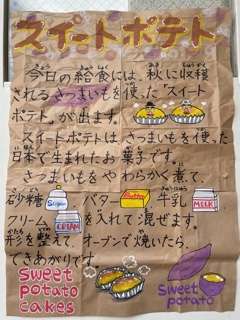 スイートポテト
今日の給食には、秋に収穫
されるさつまいもを使った「スイート
ポテト」が出ます。
スイートポテトは、さつまいもを使った
日本で生まれたお菓子です。
さつまいもをやわらかく煮て、
砂糖 Sugar、バター Butter、牛乳 MILK
クリーム CREAM を入れて混ぜます。
形を整えて、オーブンで焼いたら、
できあがりです。
sweet
potato
cakes
Sweet
potato